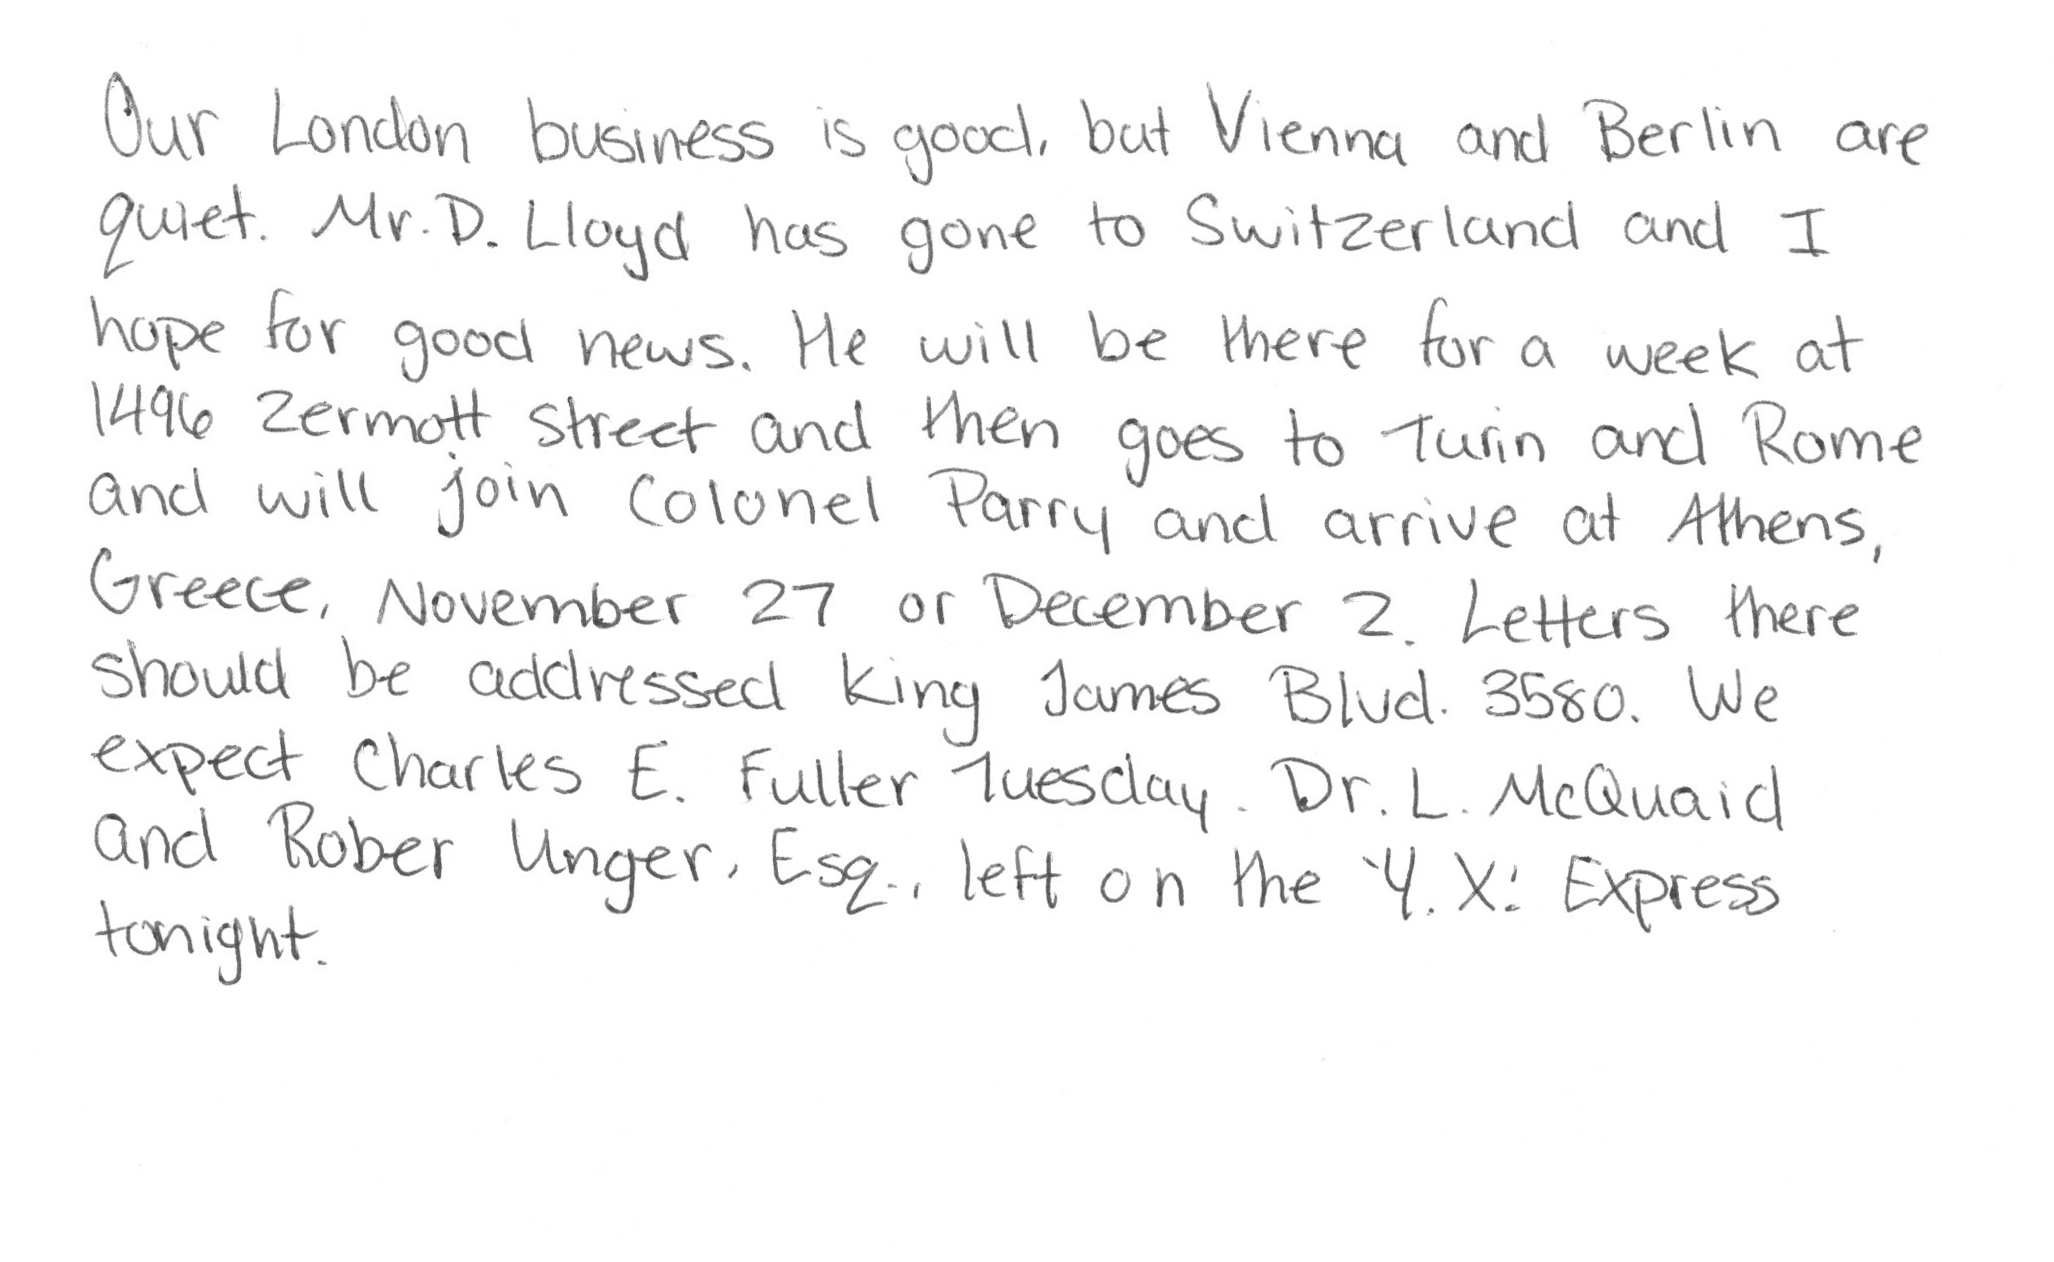 Our London business is good, but Vienna and Berlin are
quiet. Mr. D. Lloyd has gone to Switzerland and I
hope for good news. He will be there for a week at
1496 Zermott Street and then goes to Turin and Rome
and will join Colonel Parry and arrive at Athens,
Greece, November 27 or December 2. Letters there
should be addressed King James Blvd. 3580. We
expect Charles E. Fuller Tuesday. Dr. L. McQuaid
and Rober Unger, Esq., left on the "Y. X." Express
tonight.